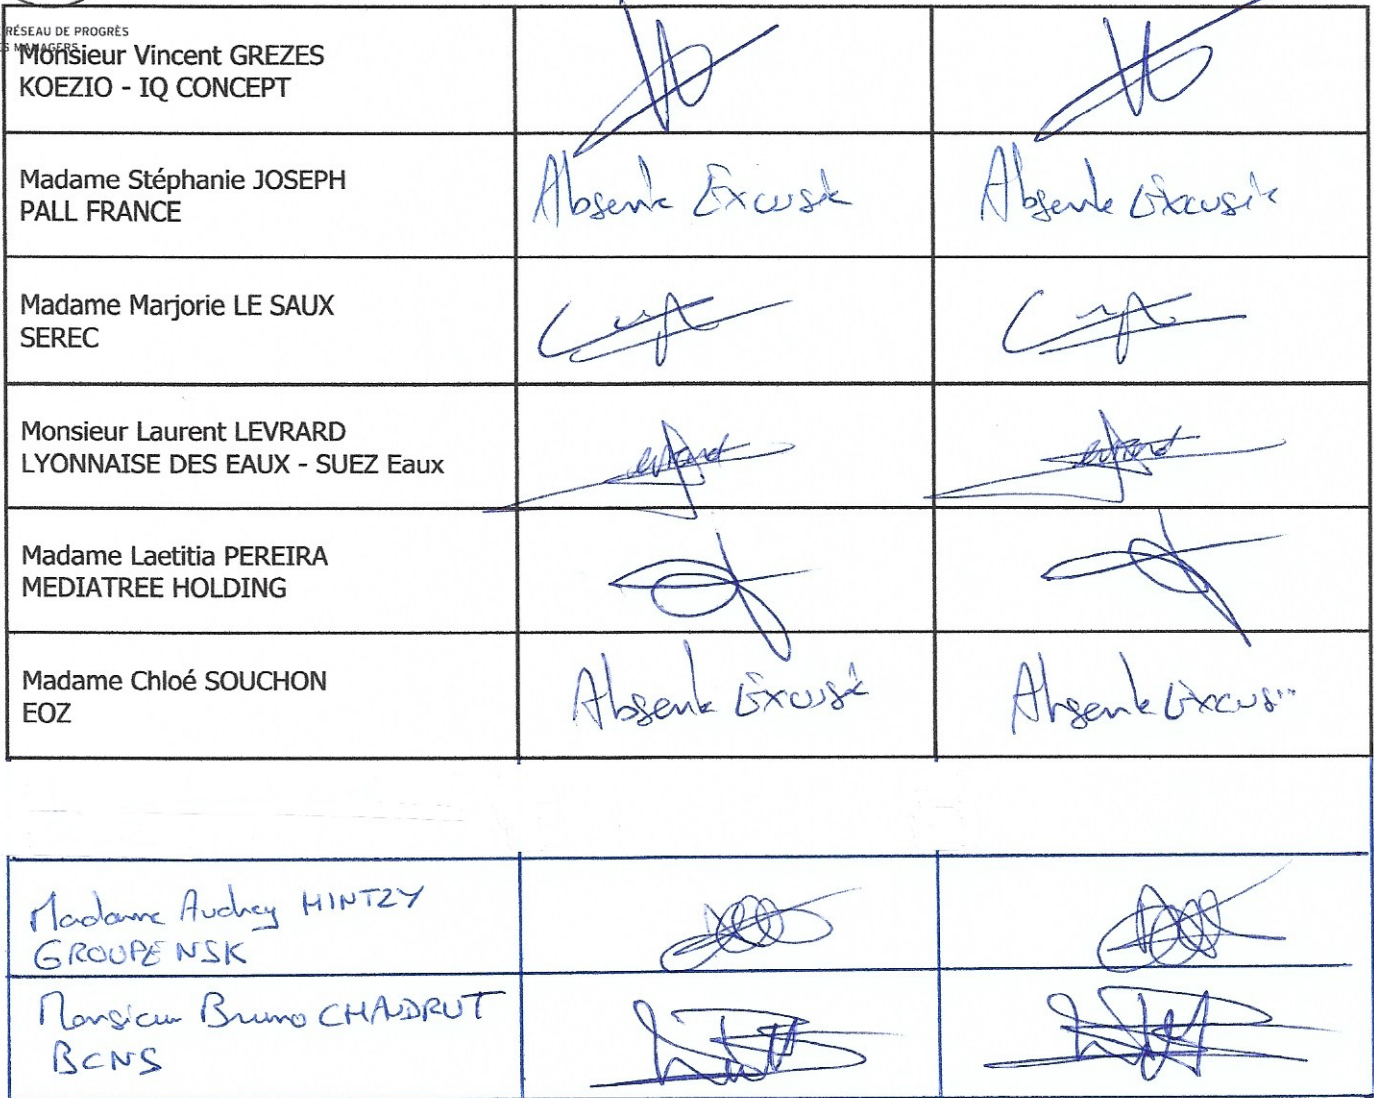 RÉSEAU DE PROGRÈS
MANAGERS
Monsieur Vincent GREZES
KOEZIO - IQ CONCEPT
Madame Stéphanie JOSEPH
PALL FRANCE
Absente Excusée
Absente Excusée
Madame Marjorie LE SAUX
SEREC
Monsieur Laurent LEVRARD
LYONNAISE DES EAUX - SUEZ Eaux
Madame Laetitia PEREIRA
MEDIATREE HOLDING
Madame Chloé SOUCHON
EOZ
Absente Excusée
Absente Excusée
Madame Audrey HINTZY
GROUPE NSK
Monsieur Bruno CHAUDRUT
BCNS